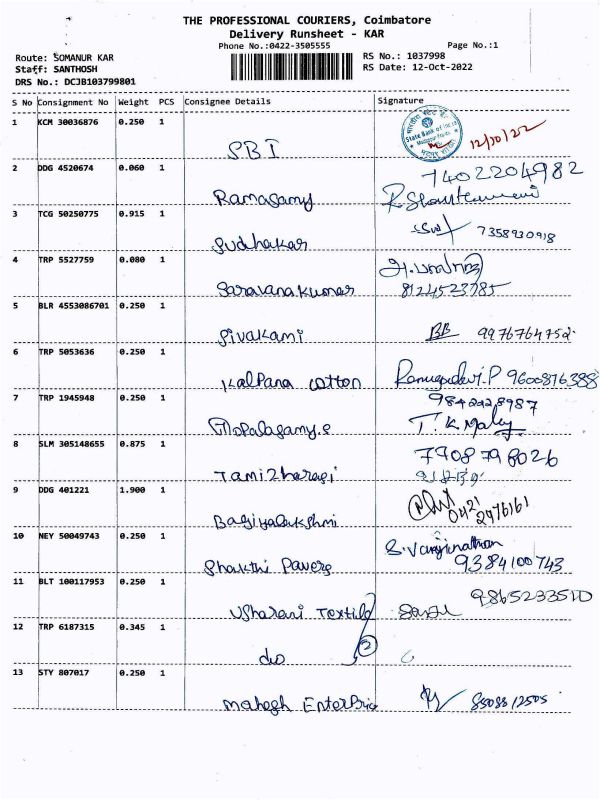 THE PROFESSIONAL COURIERS, Coimbatore
Delivery Runsheet - KAR
Phone No.:0422-3505555 Page No.:1
Route: SOMANUR KAR RS No.: 1037998
Staff: SANTHOSH RS Date: 12-Oct-2022
DRS No.: DCJB103799801
S No Consignment No Weight PCS Consignee Details Signature
1 KCM 30036876 0.250 1 SBI State Bank of India 12/10/22
2 DDG 4520674 0.060 1 Ramasamy 7402204982
3 TCG 50250775 0.915 1 Sudhakar 7358930918
4 TRP 5527759 0.080 1 Saravanakumar 8124523785
5 BLR 4553086701 0.250 1 Sivakami BB 9976764752
6 TRP 5053636 0.250 1 Kalpana cotton Renugadevi.P 9600876388
7 TRP 1945948 0.250 1 Gopalasamy.S T.K.
8 SLM 305148655 0.875 1 Tamizharasi 7908798026
9 DDG 401221 1.900 1 Bagiyalakshmi 0421 2976161
10 NEY 50049743 0.250 1 Shakthi Pavers S.Vanjinathan 9384100743
11 BLT 100117953 0.250 1 Usharani Textile 9865233510
12 TRP 6187315 0.345 1 do 2
13 STY 807017 0.250 1 Mahesh Enterprice